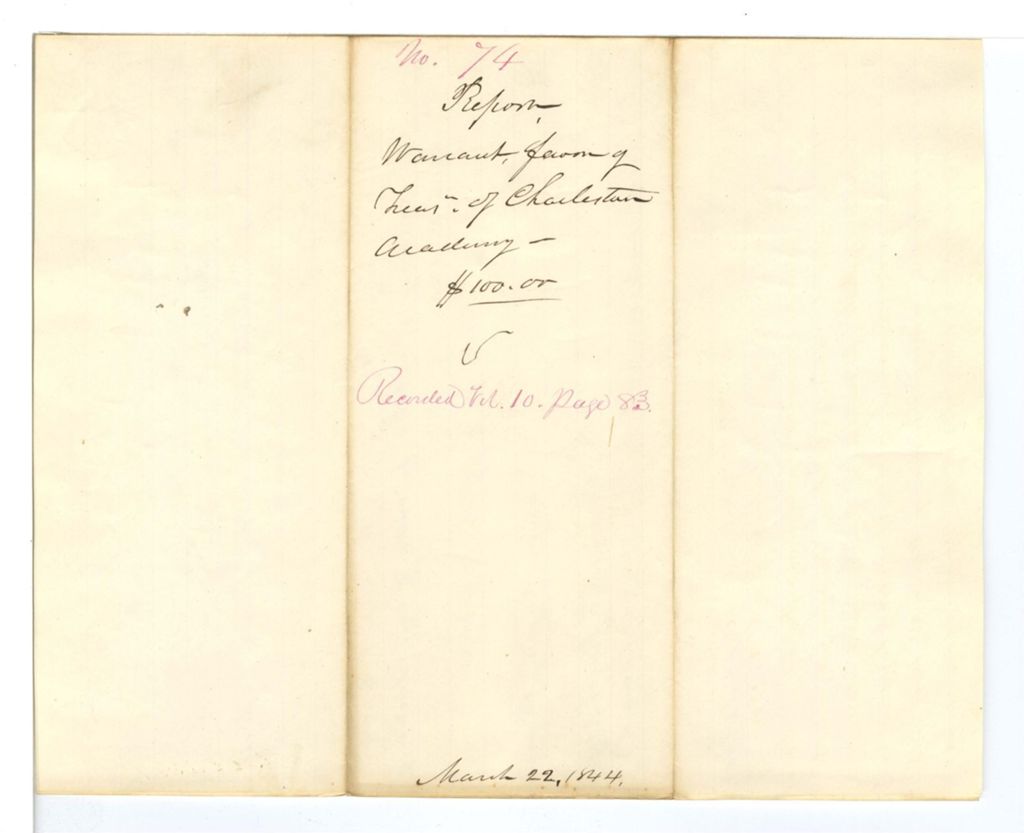 No. 74
Report,
Warrant, favor of
Treasr. of Charleston
Academy –
$100.00
Recorded Vol. 10. Page 83.
March 22, 1844.